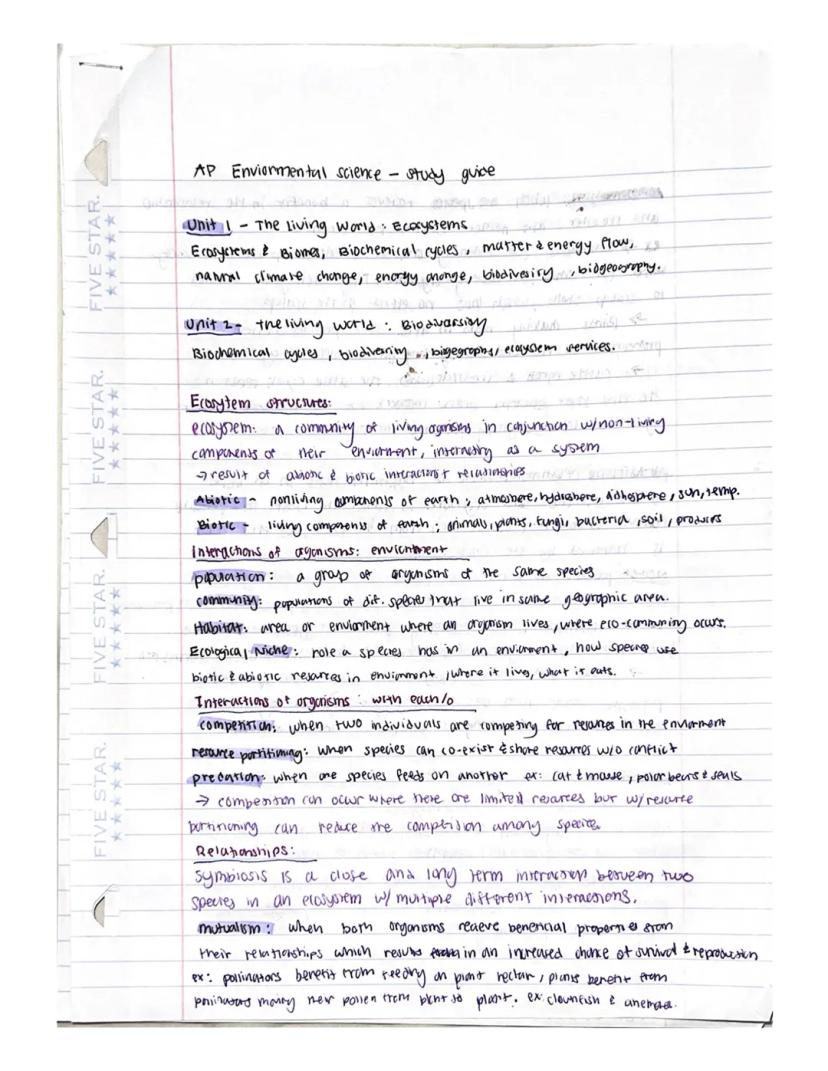 AP Enviormental science - study guide
Unit 1 - The Living World: Ecosystems
Ecosystems & Biomes, Biochemical cycles, matter & energy flow,
natural climate change, energy change, biodivesity, biogeography.
Unit 2 - the living world: Biodiversity
Biochemical cycles, biodiversity, biogegraphy, ecosystem services.
Ecosytem structures:
ecosystem: a community of living organisms in conjunction w/non-living
components of their enviorment, interacting as a system
→ result of abiotic & biotic interactions & relationships
Abiotic - nonliving components of earth; atmosphere, hydrosphere, lithosphere, sun, temp.
Biotic - living components of earth; animals, plants, fungi, bacteria, soil, producers
Interactions of organisms: enviorment
population: a group of organisms of the same species
community: populations of dif. species that live in same geographic area.
Habitat: area or enviorment where an organism lives, where eco-community occurs.
Ecological Niche: role a species has in an enviorment, how species use
biotic & abiotic resources in enviorment, where it lives, what it eats.
Interactions of organisms: with each/o
competition: when two individuals are competing for resources in the enviorment
resource partitioning: when species can co-exist & share resources w/o conflict
predation: when one species feeds on another ex: cat & mouse, polar bears & seals
→ competition can occur where there are limited resources but w/resource
partitioning can reduce the competition among species.
Relationships:
Symbiosis is a close and long term interaction between two
species in an ecosystem w/ multiple different interactions.
mutualism: when both organisms recieve beneficial properties from
their relationships which results in an increased chance of survival & reproduction
ex: pollinators benefit from feeding on plant nectar, plants benefit from
pollinators moving new pollen from plant to plant. ex: clownfish & anemone.
FIVE STAR.
FIVE STAR.
FIVE STAR.
FIVE STAR.